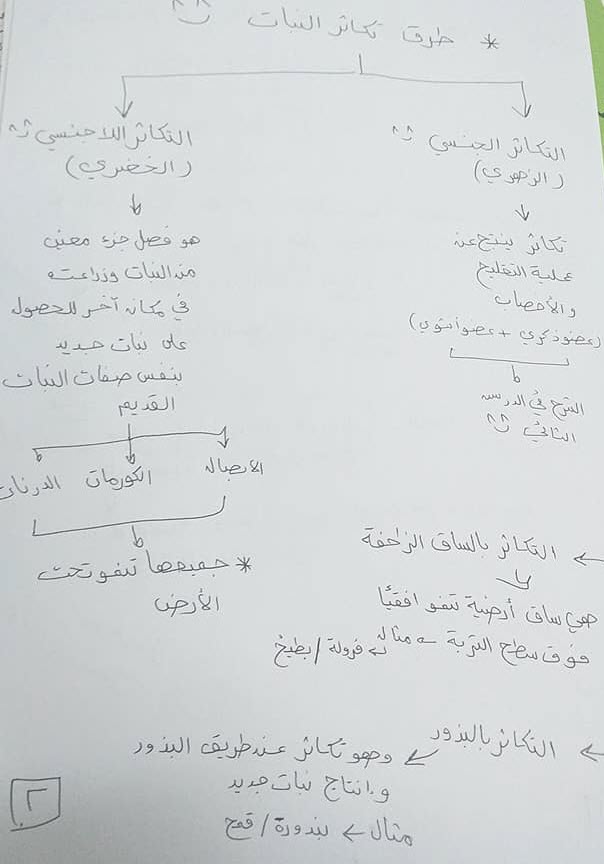 * طرق تكاثر النبات
التكاثر الجنسي
(الزهري)
تكاثر ينتج عن
عملية التلقيح
والأخصاب
(عضو ذكري + عضو أنثوي)
الشرح في الدرس
الثاني
التكاثر اللاجنسي
(الخضري)
هو فصل جزء معين
من النبات وزراعته
في مكان آخر للحصول
على نبات جديد
بنفس صفات النبات
القديم
الأبصال
الكورمات
الدرنات
* جميعها تنمو تحت
الأرض
← التكاثر بالساق الزاحفة
هي ساق أرضية تنمو افقيًا
فوق سطح التربة ← مثال فرولة / بطيخ
← التكاثر بالبذور ← وهو تكاثر عن طريق البذور
وإنتاج نبات جديد
مثال ← بندورة / قمح
٢